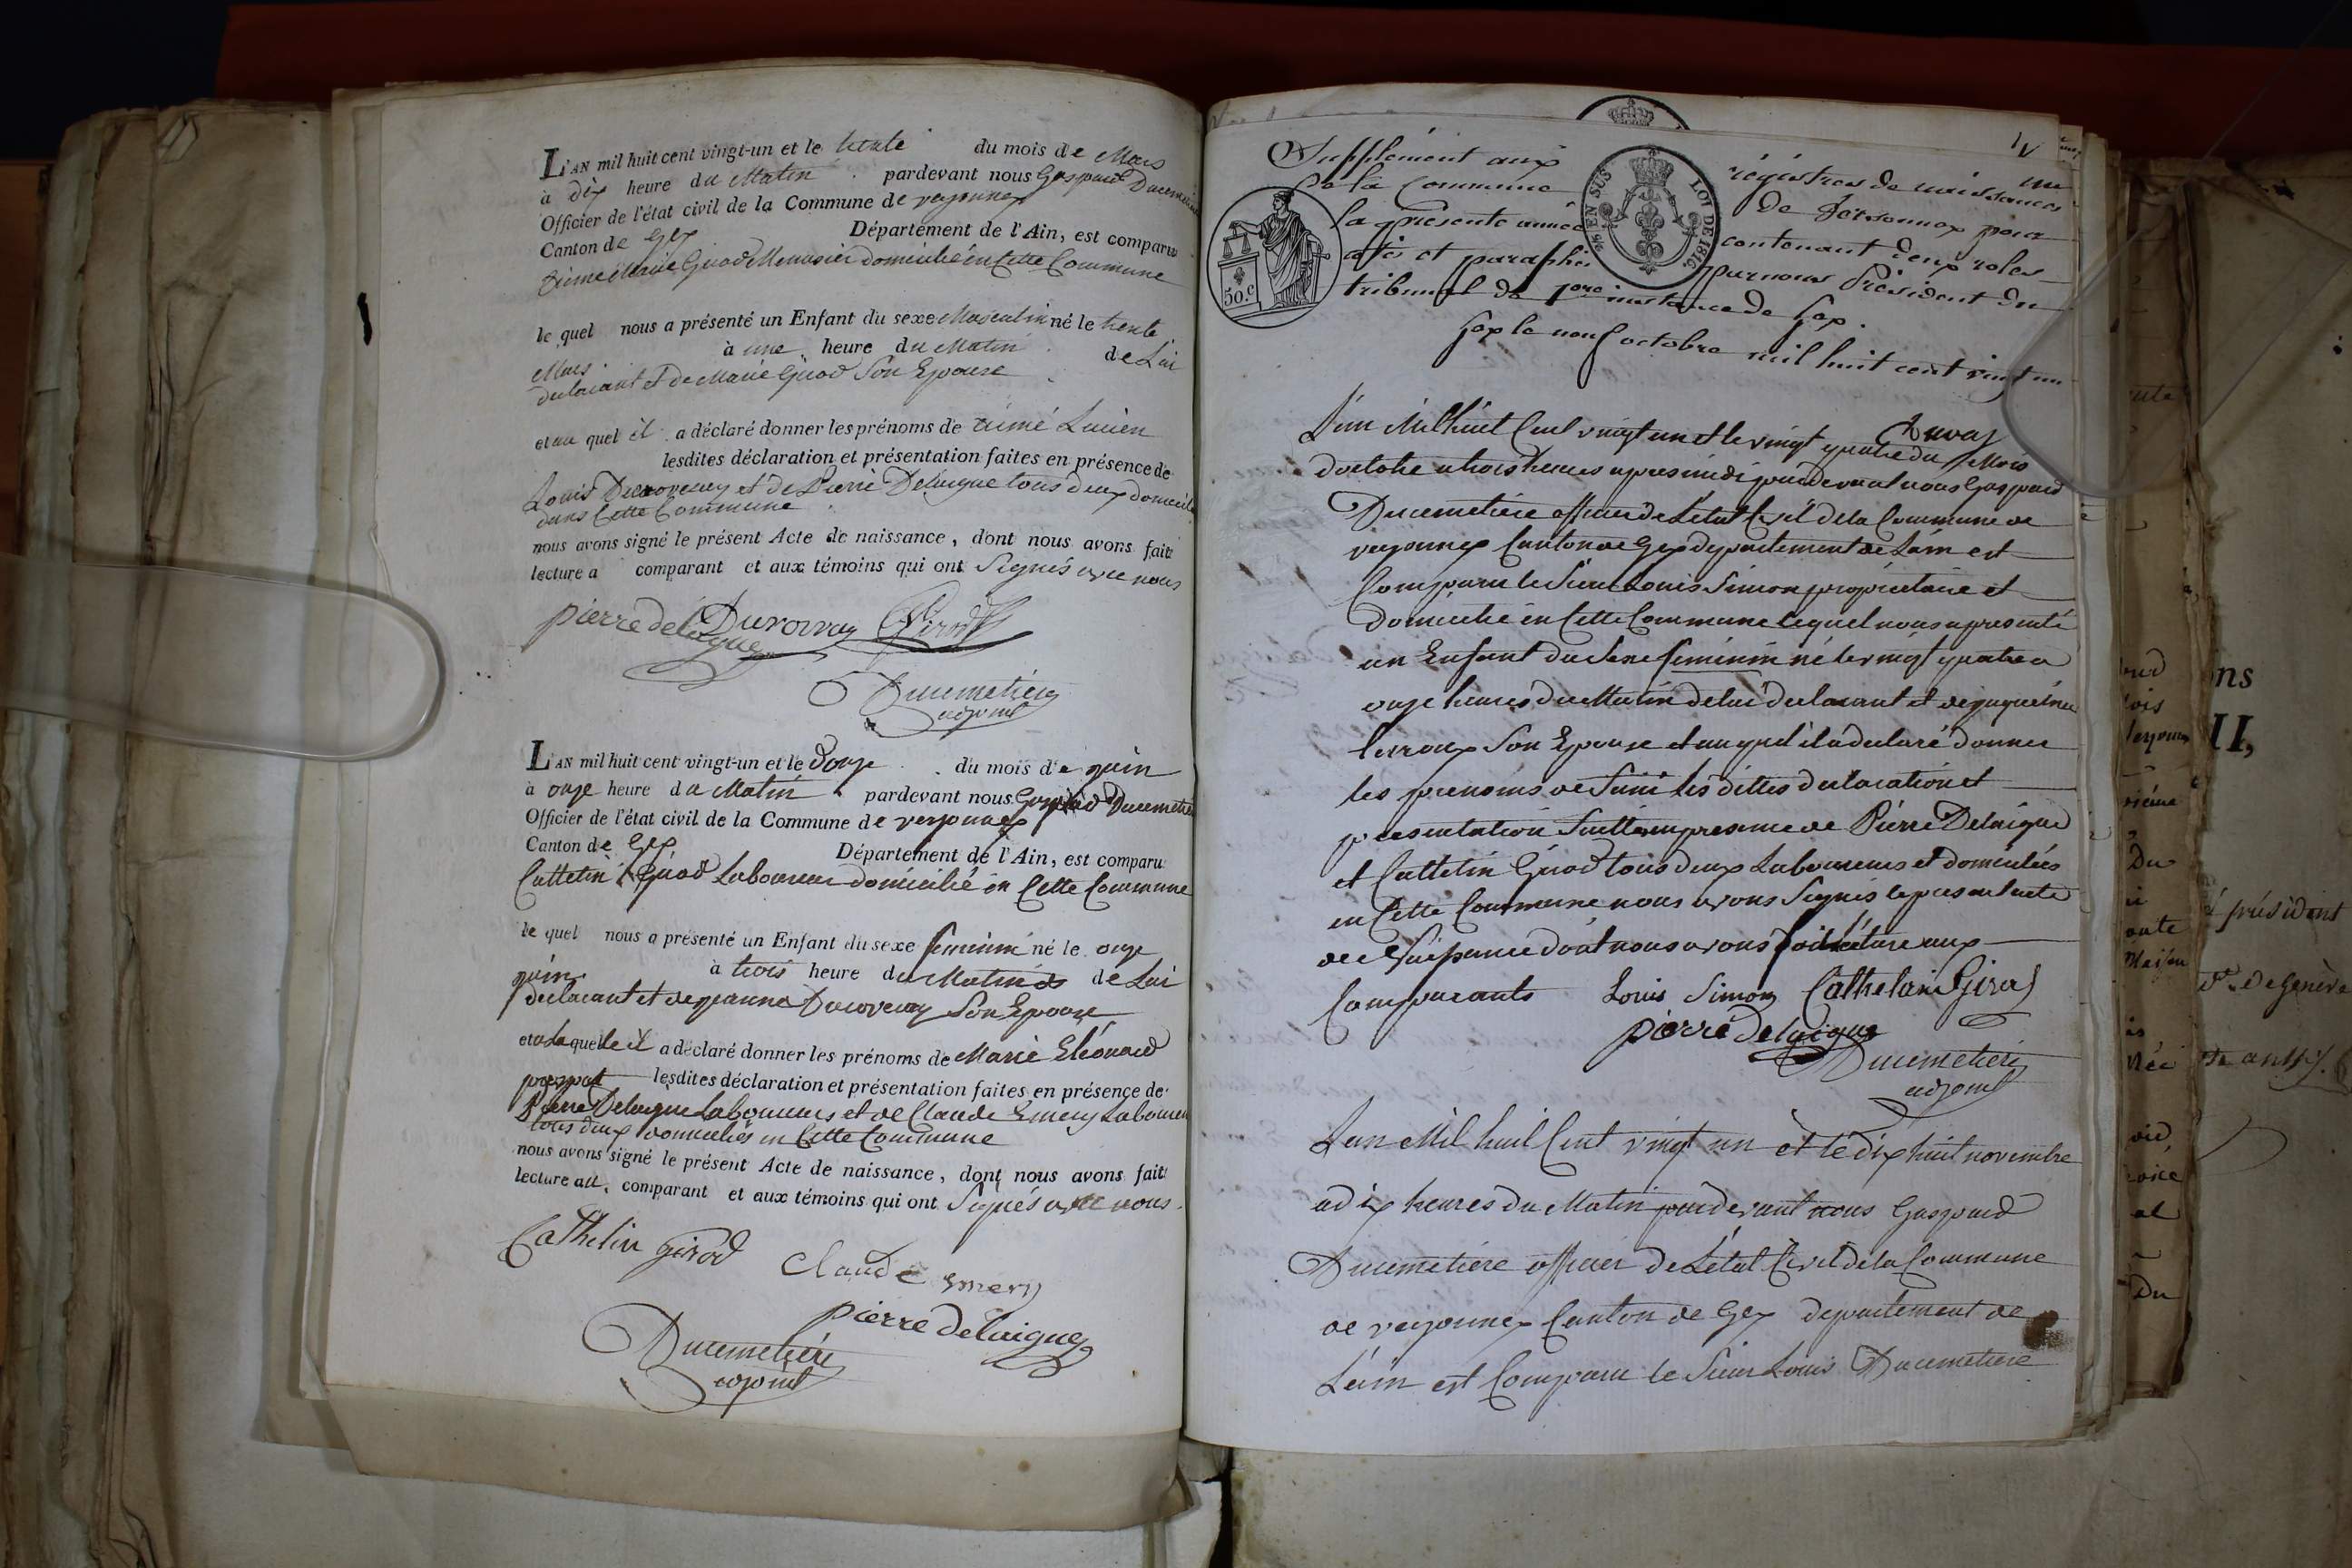 L'AN mil huit cent vingt-un et le trente du mois de Mars
à dix heure du Matin pardevant nous Gaspard Ducemetiere
Officier de l'état civil de la Commune de versonnex
Canton de Gex Département de l'Ain, est comparu
Girod Menusier domicilié en Cette Commune
le quel nous a présenté un Enfant du sexe Masculin né le trente
Mars à une heure du Matin de Lui
declarant et de Marie Girod Son Epouse
et au quel il a déclaré donner les prénoms de aimé Lucien
lesdites déclaration et présentation faites en présence de
Louis Durovray et de Pierre Delaigue tous deux domicilié
dans Cette Commune
nous avons signé le présent Acte de naissance, dont nous avons fait
lecture a comparant et aux témoins qui ont Signés avec nous
pierre delaigue Durovray Girod
Ducemetiere
adjoint
L'AN mil huit cent vingt-un et le Douze du mois de juin
à onze heure du Matin pardevant nous Gaspard Ducemetiere
Officier de l'état civil de la Commune de versonnex
Canton de Gex Département de l'Ain, est comparu
Cattelin Girod Laboureur domicilié en Cette Commune
le quel nous a présenté un Enfant du sexe feminin né le onze
juin à trois heure du Matin de Lui
declarant et de jeanne Durovray Son Epouse
et a laquelle il a déclaré donner les prénoms de Marie Eléonard
lesdites déclaration et présentation faites en présence de
Pierre Delaigue Laboureurs et de Claude Emery Laboureur
tous deux domiciliés en Cette Commune
nous avons signé le présent Acte de naissance, dont nous avons fait
lecture au comparant et aux témoins qui ont Signés avec nous.
Cathelin girod Claude emery
pierre delaigue
Ducemetiere
adjoint
Supplément aux régistres de naissances
de la Commune de Versonnex pour
la présente année contenant deux roles
cotés et paraphés par nous Président du
tribunal de 1ere instance de Gex.
Gex le neuf octobre mil huit cent vingt un
50.C
25 EN SUS
LOI DE 1816
L'an Mil huit Cent vingt un et le vingt quatre du Mois
d'octobre a trois heures apres midi pardevant nous Gaspard
Ducemetiere officier de L'état Civil de la Commune de
versonnex Canton de Gex departement de L'ain est
Comparu le Sieur Louis Simon proprietaire et
domicilié en Cette Commune lequel nous a presenté
un Enfant du Sexe feminin né le vingt quatre a
onze heures du Matin de lui declarant et de jaqueline
Lerroux Son Epouse et au quel il a declaré donner
les prenoms de les dittes declaration et
presentation faitte en presence de Pierre Delaigue
et Cattelin Girod tous deux Laboureurs et domiciliés
en Cette Commune nous avons Signés le present acte
de Naissance dont nous avons fait lecture aux
Comparants Louis Simon Cathelain Girod
pierre delaigue
Ducemetiere
adjoint
L'an Mil huit Cent vingt un et le dix huit novembre
a dix heures du Matin pardevant nous Gaspard
Ducemetiere officier de L'état Civil de la Commune
de versonnex Canton de Gex departement de
L'ain est Comparu le Sieur Louis Ducemetiere